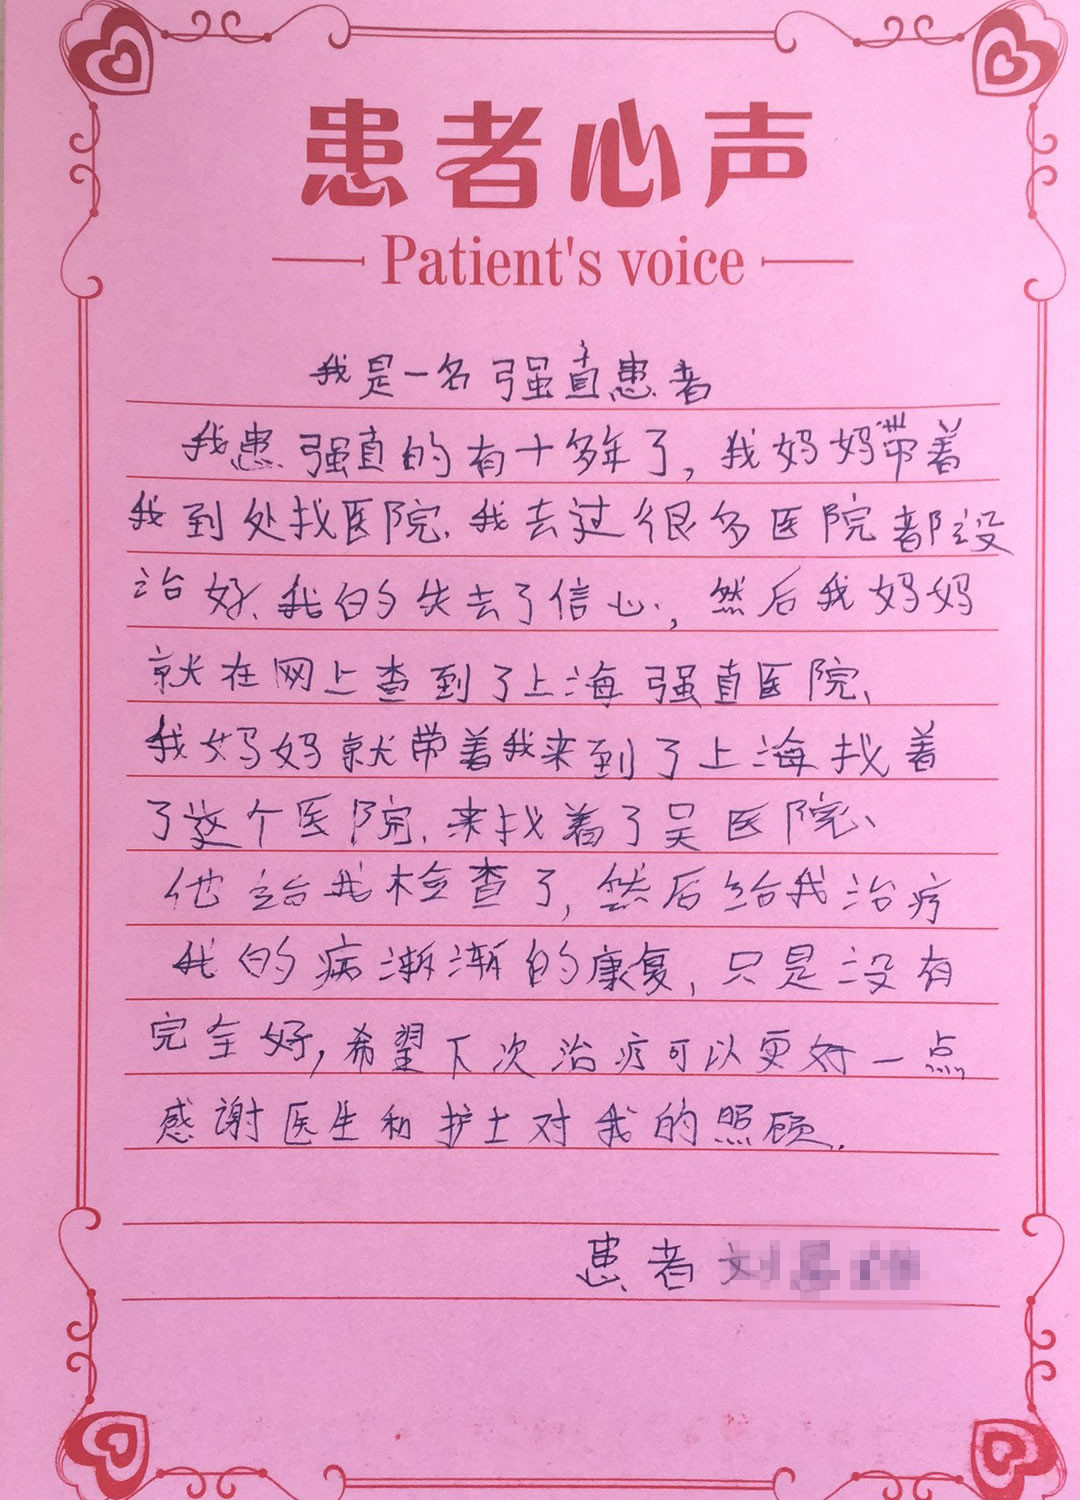 患者心声
Patient's voice
我是一名强直患者
我患强直的有十多年了，我妈妈带着
我到处找医院.我去过很多医院都没
治好.我的失去了信心.，然后我妈妈
就在网上查到了上海强直医院、
我妈妈就带着我来到了上海找着
了这个医院.来找着了吴医院、
他给我检查了，然后给我治疗
我的病渐渐的康复，只是没有
完全好，希望下次治疗可以更好一点
感谢医生和护士对我的照顾.
患者